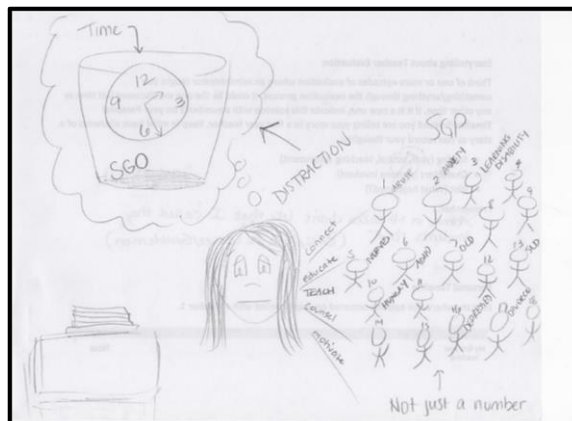 Time
12
9
3
6
SGO
DISTRACTION
SGP
connect
educate
TEACH
counsel
motivate
1
ABUSE
2
ANXIETY
3
LEARNING
DISABILITY
5
6
ADHD
7
OLD
8
9
10
HUNGRY
12
13
SLD
14
15
16
17
DIVORCE
18
Not just a number